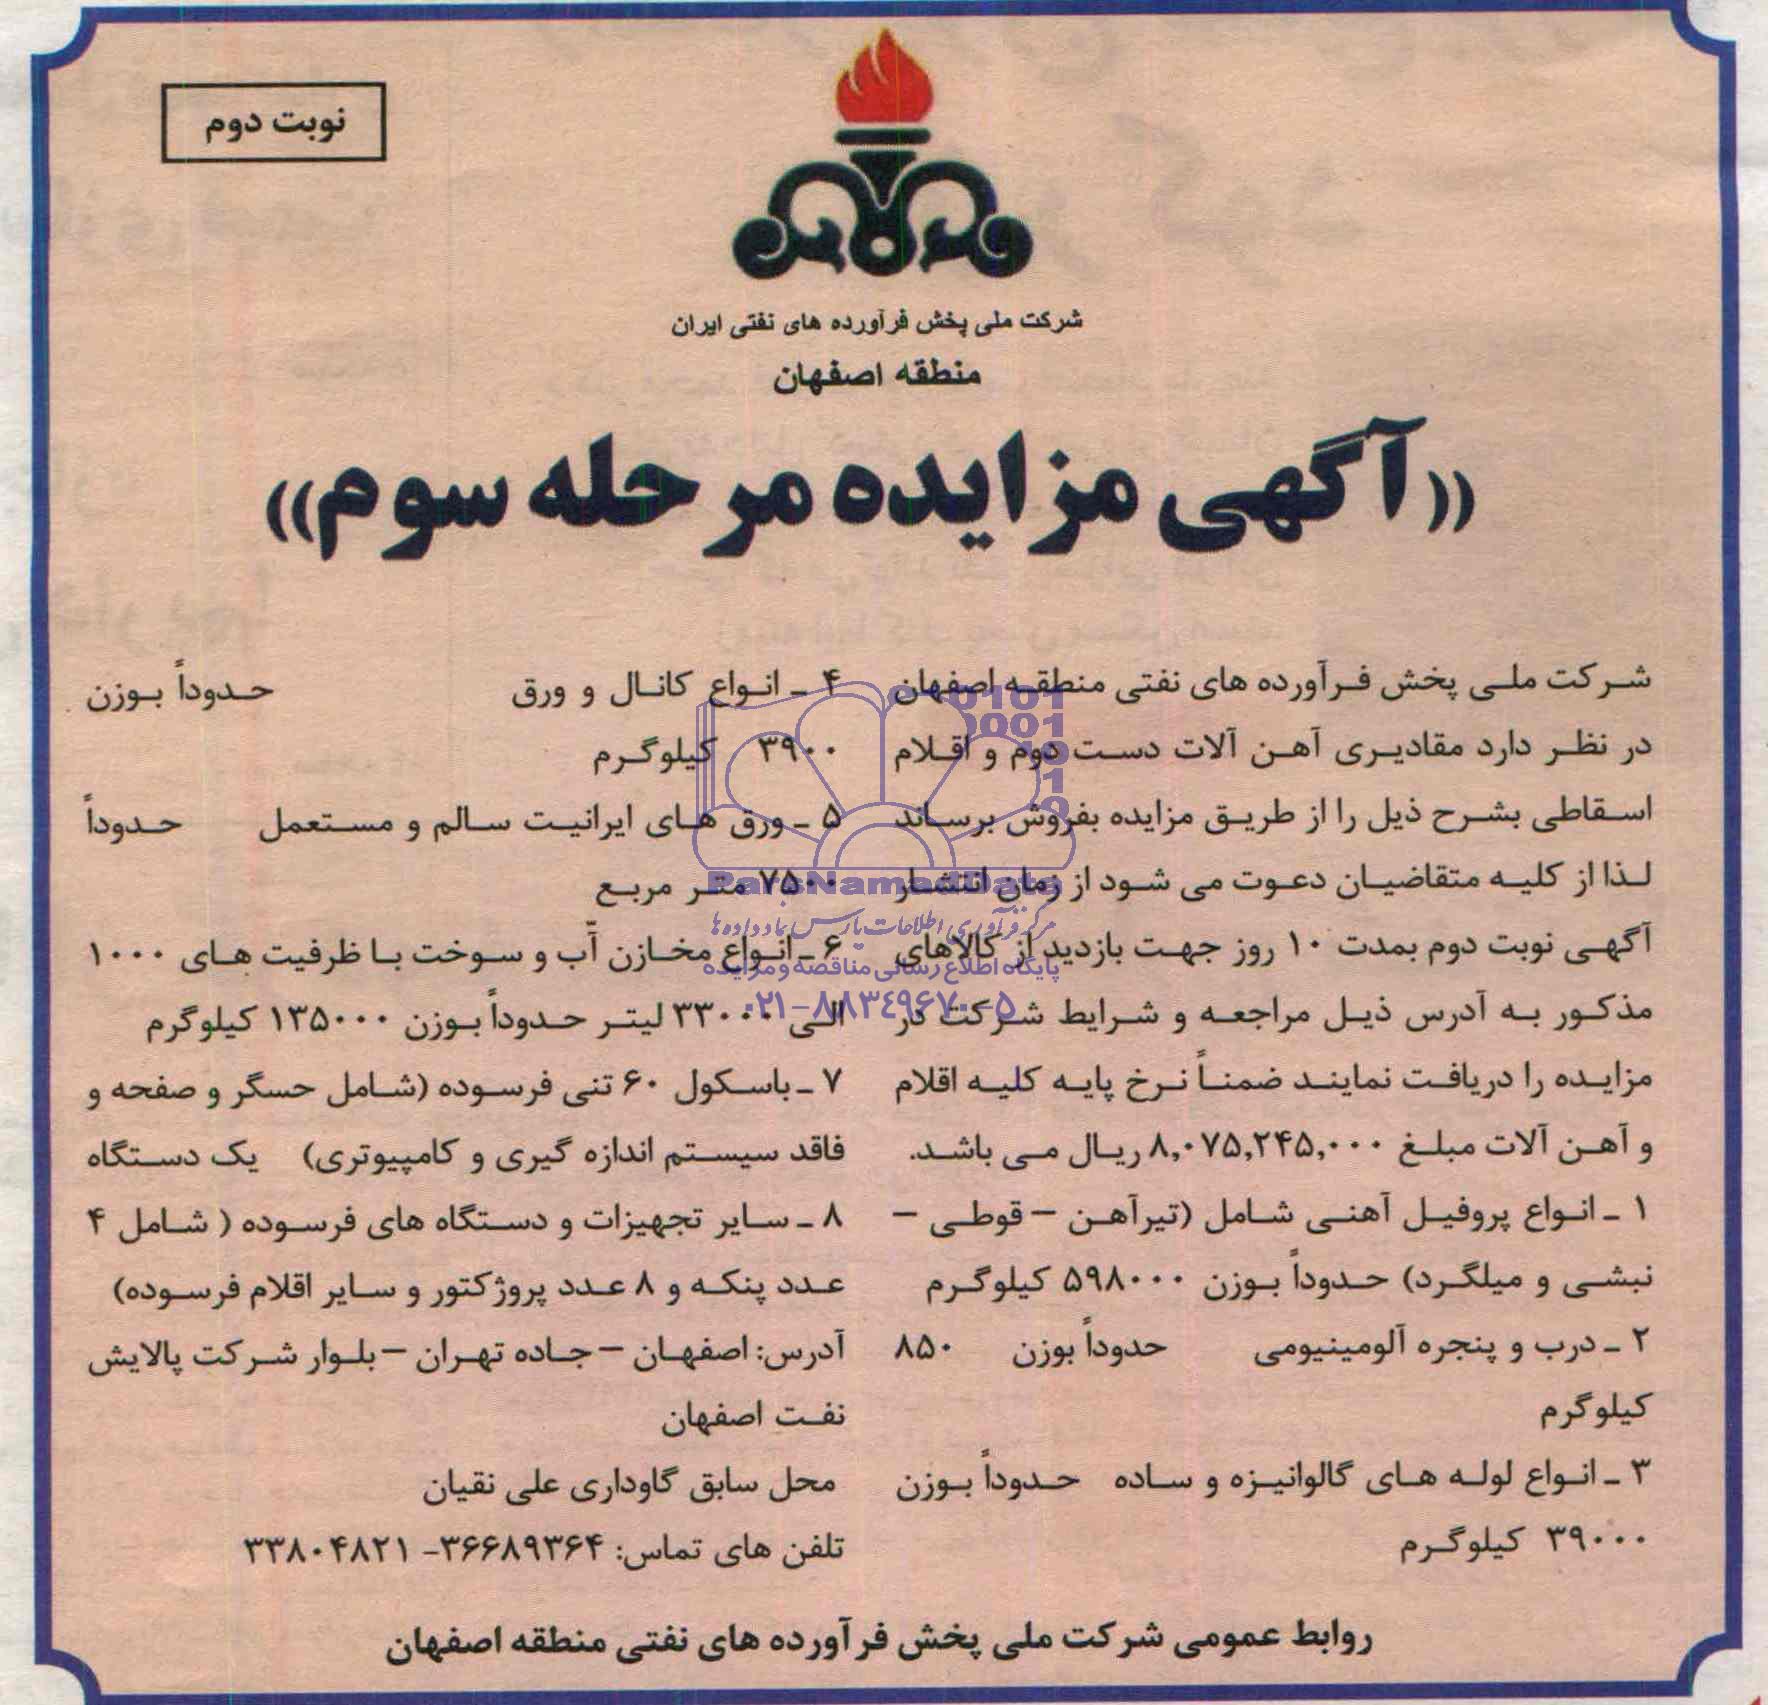 نوبت دوم
شرکت ملی پخش فرآورده های نفتی ایران
منطقه اصفهان
((آگهی مزایده مرحله سوم))
شرکت ملی پخش فرآورده های نفتی منطقه اصفهان
در نظر دارد مقادیری آهن آلات دست دوم و اقلام
اسقاطی بشرح ذیل را از طریق مزایده بفروش برساند
لذا از کلیه متقاضیان دعوت می شود از زمان انتشار
آگهی نوبت دوم بمدت ۱۰ روز جهت بازدید از کالاهای
مذکور به آدرس ذیل مراجعه و شرایط شرکت در
مزایده را دریافت نمایند ضمناً نرخ پایه کلیه اقلام
و آهن آلات مبلغ ۸,۰۷۵,۲۴۵,۰۰۰ ریال می باشد.
۱ ـ انواع پروفیل آهنی شامل (تیرآهن – قوطی –
نبشی و میلگرد) حدوداً بوزن ۵۹۸۰۰۰ کیلوگرم
۲ ـ درب و پنجره آلومینیومی حدوداً بوزن ۸۵۰
کیلوگرم
۳ ـ انواع لوله های گالوانیزه و ساده حدوداً بوزن
۳۹۰۰۰ کیلوگرم
۴ ـ انواع کانال و ورق حدوداً بوزن
۳۹۰۰ کیلوگرم
۵ ـ ورق های ایرانیت سالم و مستعمل حدوداً
۷۵۰۰ متر مربع
۶ ـ انواع مخازن آب و سوخت با ظرفیت های ۱۰۰۰
الی ۳۳۰۰۰ لیتر حدوداً بوزن ۱۳۵۰۰۰ کیلوگرم
۷ ـ باسکول ۶۰ تنی فرسوده (شامل حسگر و صفحه و
فاقد سیستم اندازه گیری و کامپیوتری) یک دستگاه
۸ ـ سایر تجهیزات و دستگاه های فرسوده ( شامل ۴
عدد پنکه و ۸ عدد پروژکتور و سایر اقلام فرسوده)
آدرس: اصفهان – جاده تهران – بلوار شرکت پالایش
نفت اصفهان
محل سابق گاوداری علی نقیان
تلفن های تماس: ۳۶۶۸۹۳۶۴- ۳۳۸۰۴۸۲۱
روابط عمومی شرکت ملی پخش فرآورده های نفتی منطقه اصفهان
ParsNamadData
مرکز فرآوری اطلاعات پارس نماد داده ها
پایگاه اطلاع رسانی مناقصه و مزایده
۰۲۱-۸۸۳۴۹۶۷۰-۵